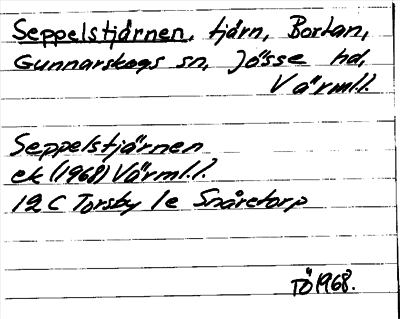 Seppelstjärnen, tjärn, Bortan,
Gunnarskogs sn, Jösse hd,
Värml.
Seppelstjärnen
ek (1968) Värml.
12 C Torsby 1e Snåretorp
TÖ 1968.